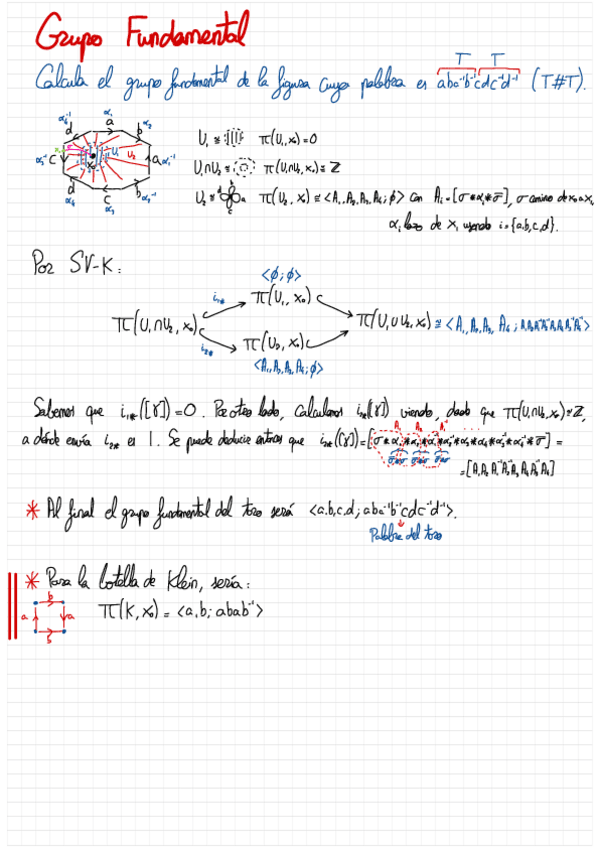 Grupo Fundamental
T T
Calcula el grupo fundamental de la figura cuya palabra es aba⁻¹b⁻¹cdc⁻¹d⁻¹ (T#T).
U₁ ≅ π(U₁,x₀)=0
U₁∩U₂ ≅ π(U₁∩U₂,x₀) ≅ ℤ
U₂ ≅ π(U₂,x₀) ≅ <A₁,A₂,A₃,A₄;ϕ> con Aᵢ=[σ*αᵢ*σ̅], σ camino de x₀ a x₁
αᵢ lazo de x₁ usando i={a,b,c,d}.
Por SV-K:
<ϕ;ϕ>
i₁* π(U₁,x₀)
π(U₁∩U₂,x₀) π(U₁∪U₂,x₀) ≅ <A₁,A₂,A₃,A₄; A₁A₂A₁⁻¹A₂⁻¹A₃A₄A₃⁻¹A₄⁻¹>
i₂* π(U₂,x₀)
<A₁,A₂,A₃,A₄;ϕ>
Sabemos que i₁*([γ])=0. Por otro lado, calculamos i₂*([γ]) viendo, dado que π(U₁∩U₂,x₀)≅ℤ,
a dónde envía i₂* el 1. Se puede deducir entonces que i₂*([γ])=[σ*α₁*α₂*α₁⁻¹*α₂⁻¹*α₃*α₄*α₃⁻¹*α₄⁻¹*σ̅] =
=[A₁A₂A₁⁻¹A₂⁻¹A₃A₄A₃⁻¹A₄⁻¹]
* Al final el grupo fundamental del toro será <a,b,c,d; aba⁻¹b⁻¹cdc⁻¹d⁻¹>.
Palabra del toro
* Para la botella de Klein, sería:
b
a a π(K,x₀) = <a,b; abab⁻¹>
b